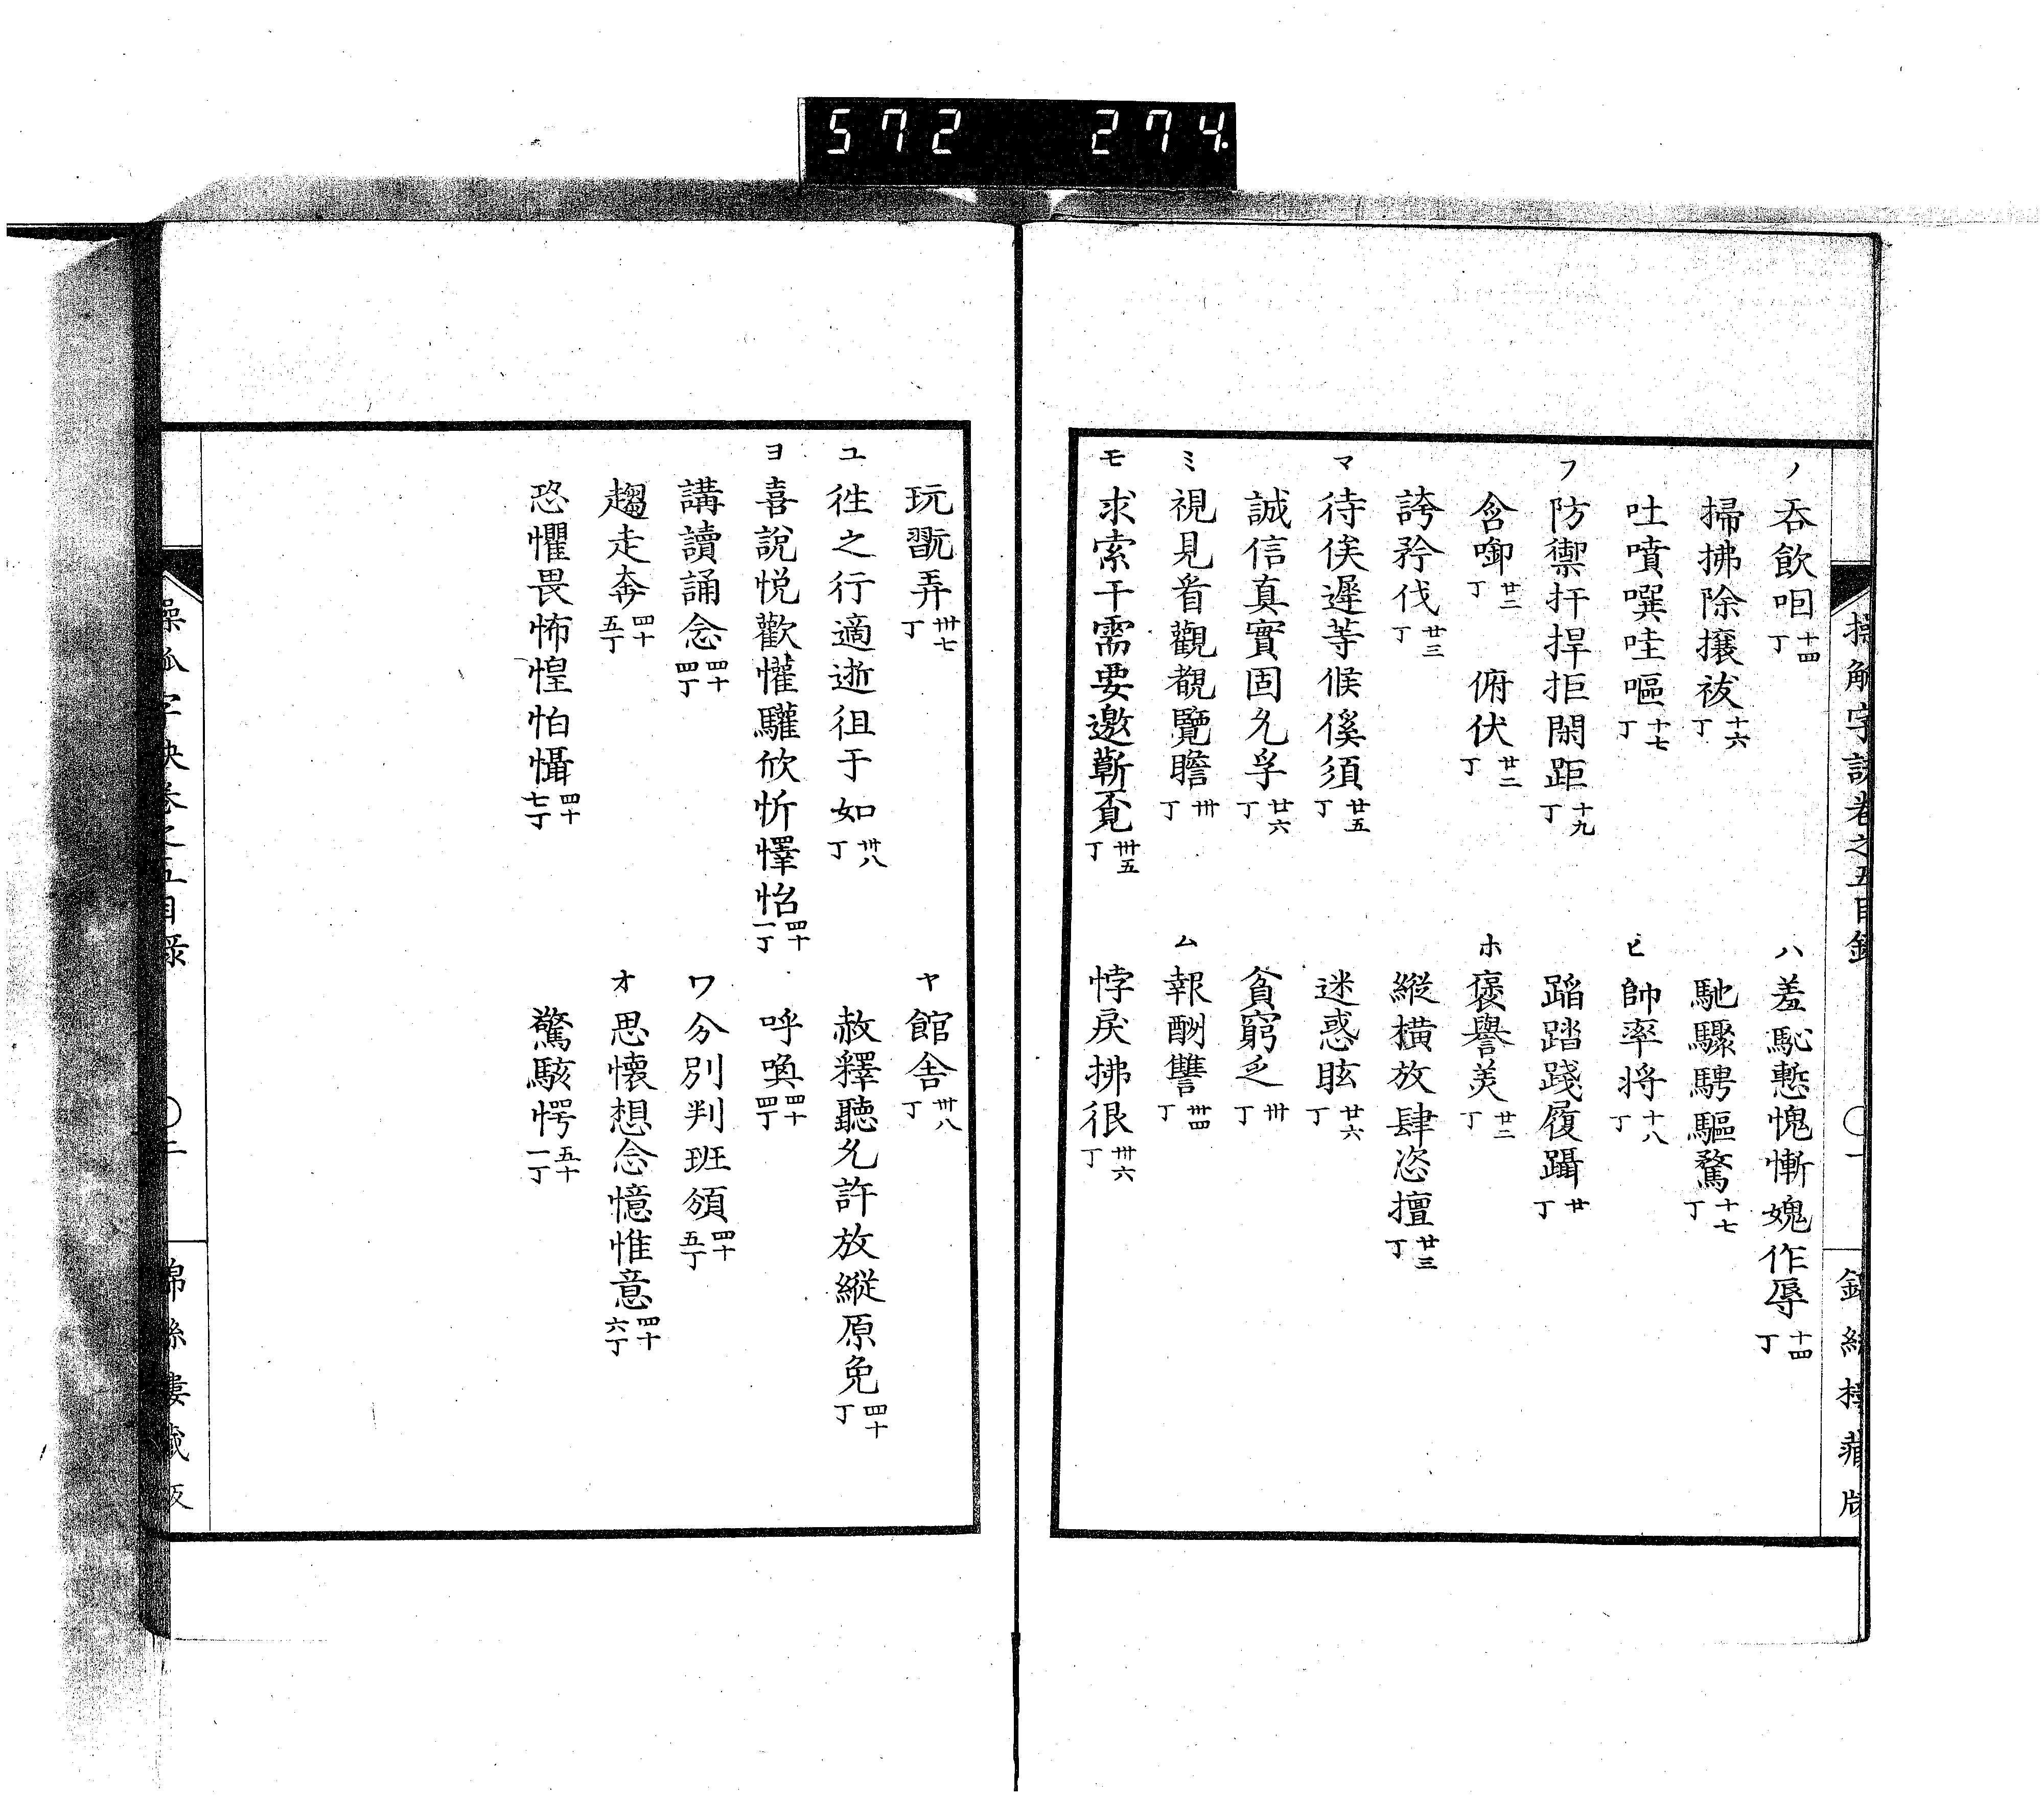 572 274.
操觚字訣卷之五目錄 〇一 錦絲樓藏版
ノ 吞飲咽 十四丁 ハ 羞恥慙愧慚媿作辱 十四丁
掃拂除攘祓 十六丁 馳驟騁驅騖 十七丁
吐噴噀哇嘔 十七丁 ヒ 帥率将 十八丁
フ 防禦扞捍拒閑距 十九丁 蹈踏踐履躡 廿丁
含啣 廿二丁 俯伏 廿二丁 ホ 褒譽美 廿二丁
誇矜伐 廿三丁 縦横放肆恣擅 廿三丁
マ 待俟遲等候傒須 廿五丁 迷惑眩 廿六丁
誠信真實固允孚 廿六丁 貧窮乏 卅丁
ミ 視見看觀覩覽瞻 卅丁 ム 報酬讐 卅四丁
モ 求索干需要邀蘄覔 卅五丁 悖戾拂很 卅六丁
玩翫弄 卅七丁 ヤ 館舎 卅八丁
ユ 徃之行適逝徂于如 卅八丁 赦釋聽允許放縦原免 四十丁
ヨ 喜説悦歡懽驩欣忻懌怡 四十一丁 呼喚 四十四丁
講讀誦念 四十四丁 ワ 分別判班頒 四十五丁
趨走奔 四十五丁 オ 思懐想念憶惟意 四十六丁
恐懼畏怖惶怕懾 四十七丁 驚駭愕 五十一丁
操觚字訣卷之五目錄 〇二 錦絲樓藏版